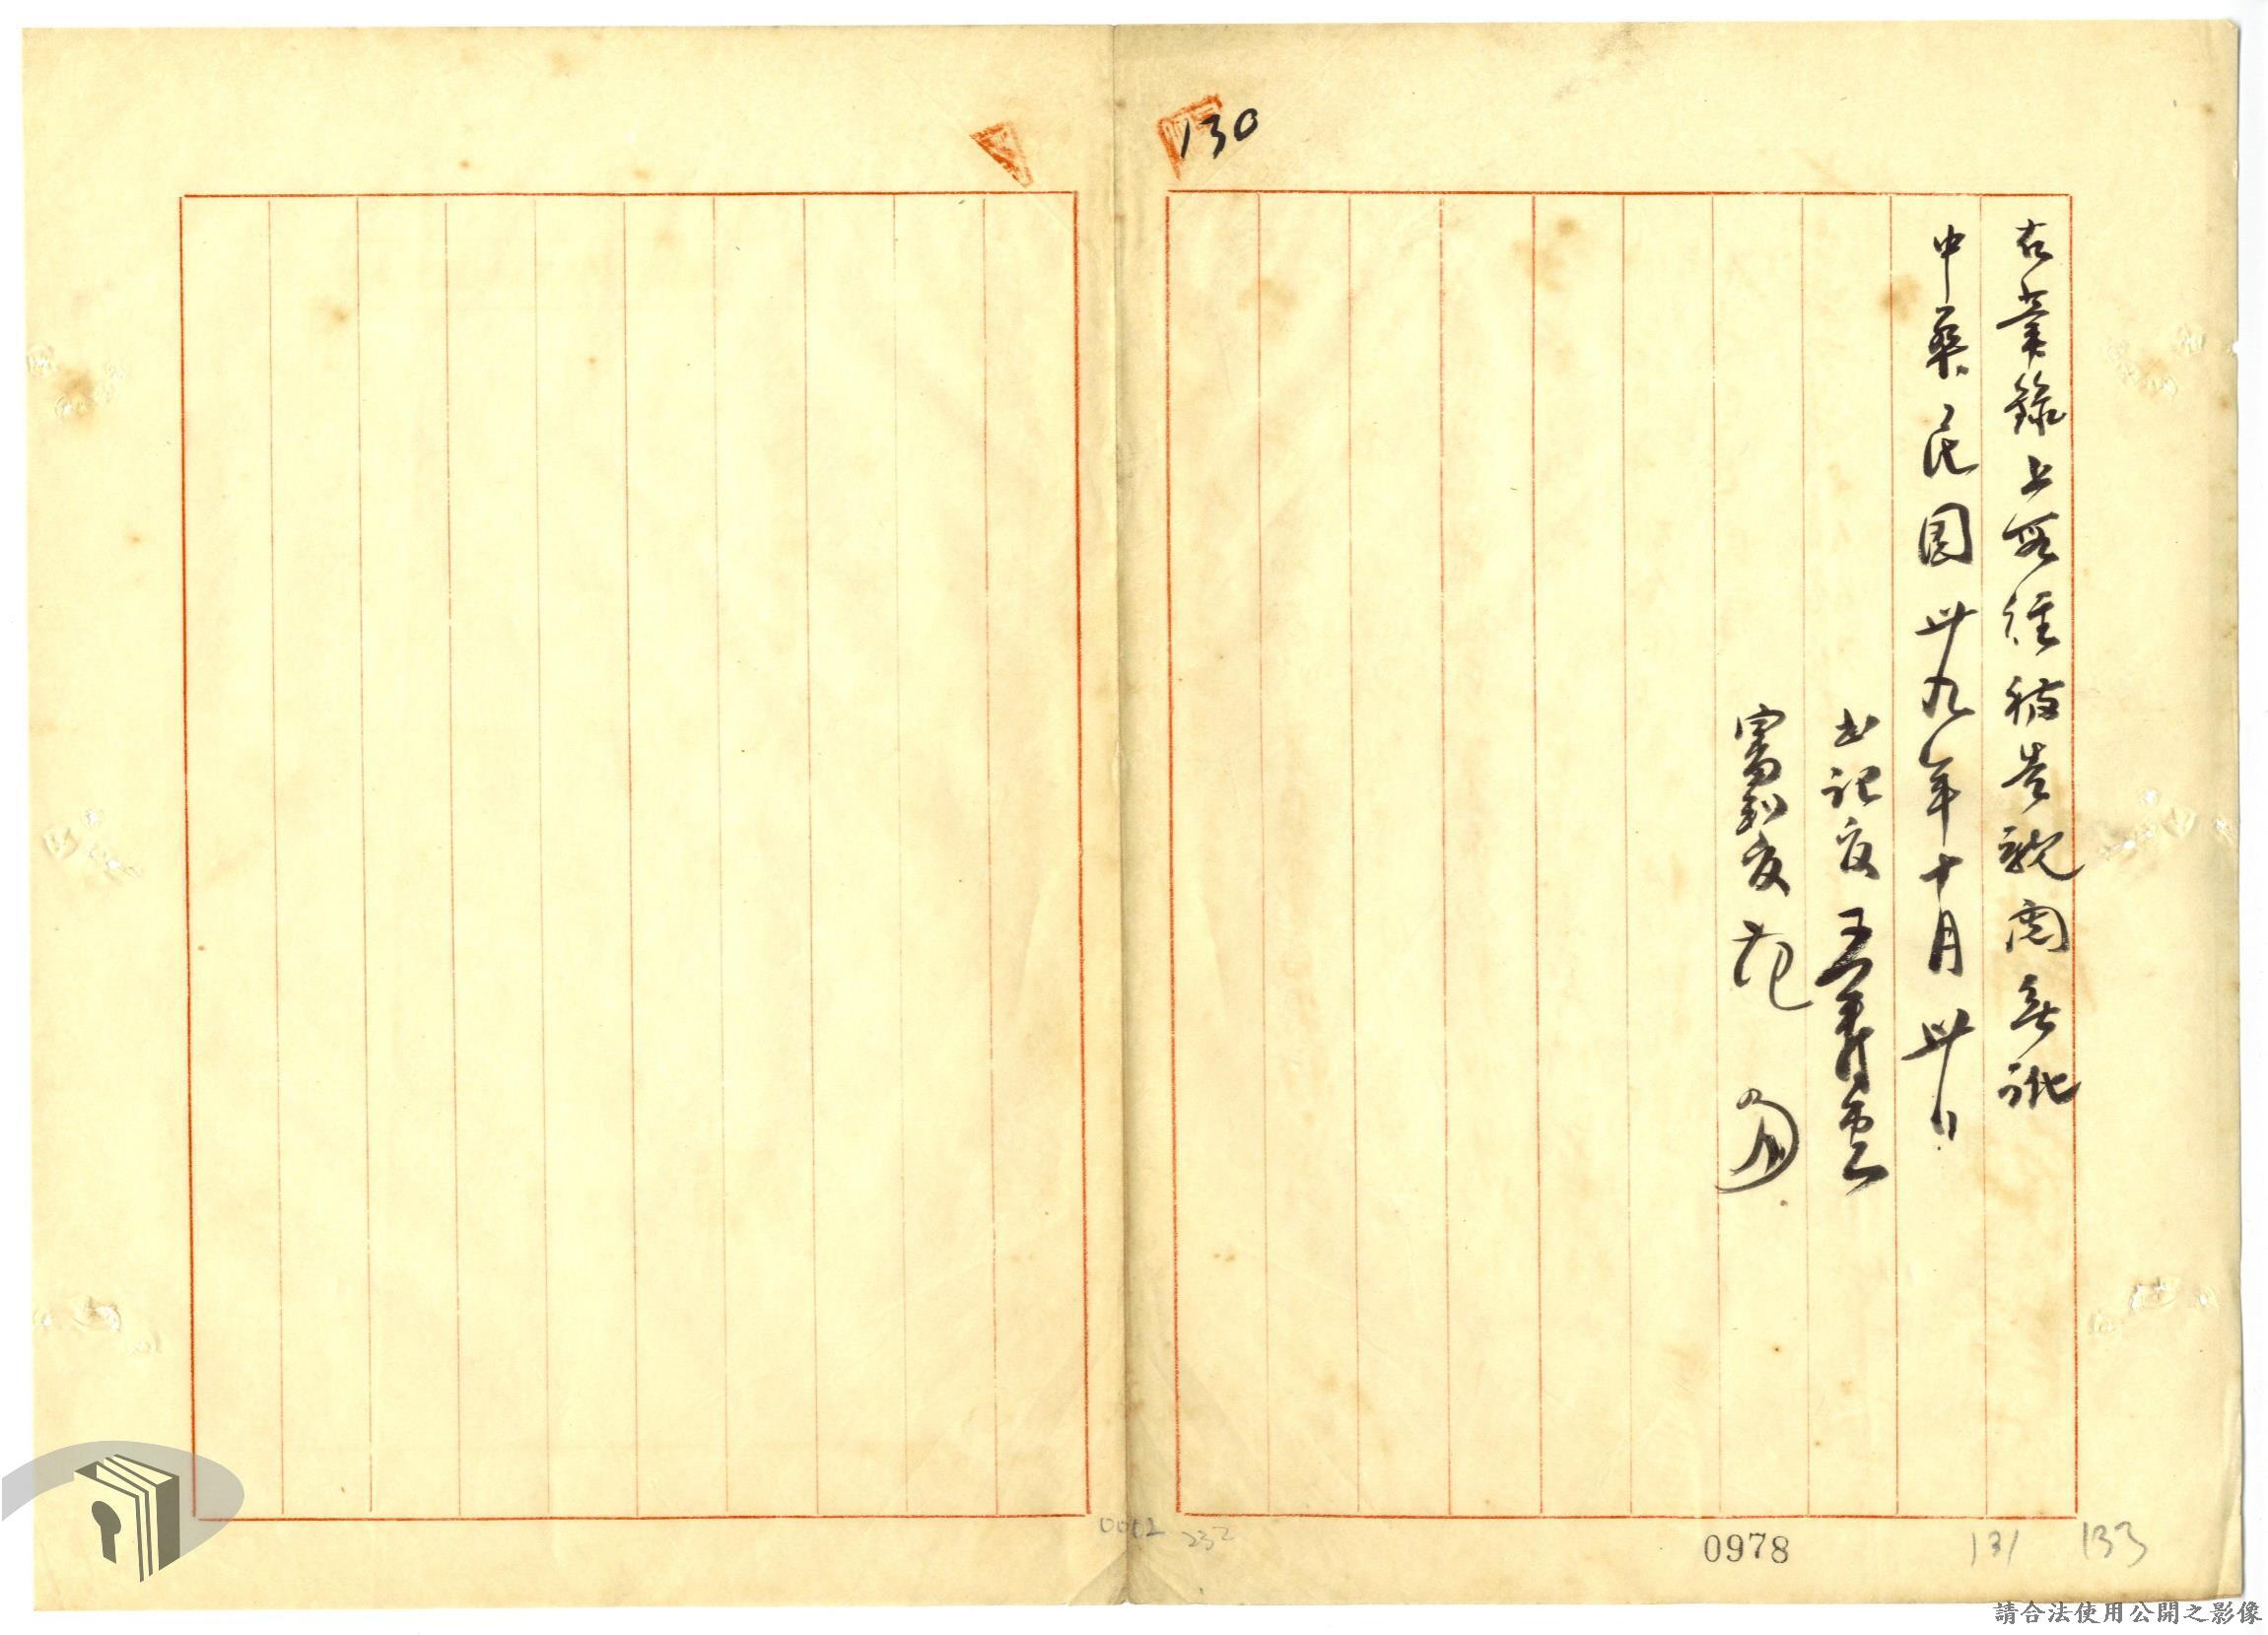 右筆錄上開經被告親閱無訛
中華民國卅九年十月卅日
書記官 王壽雲
審判官 范
130
0978
131
133
0012
232
請合法使用公開之影像